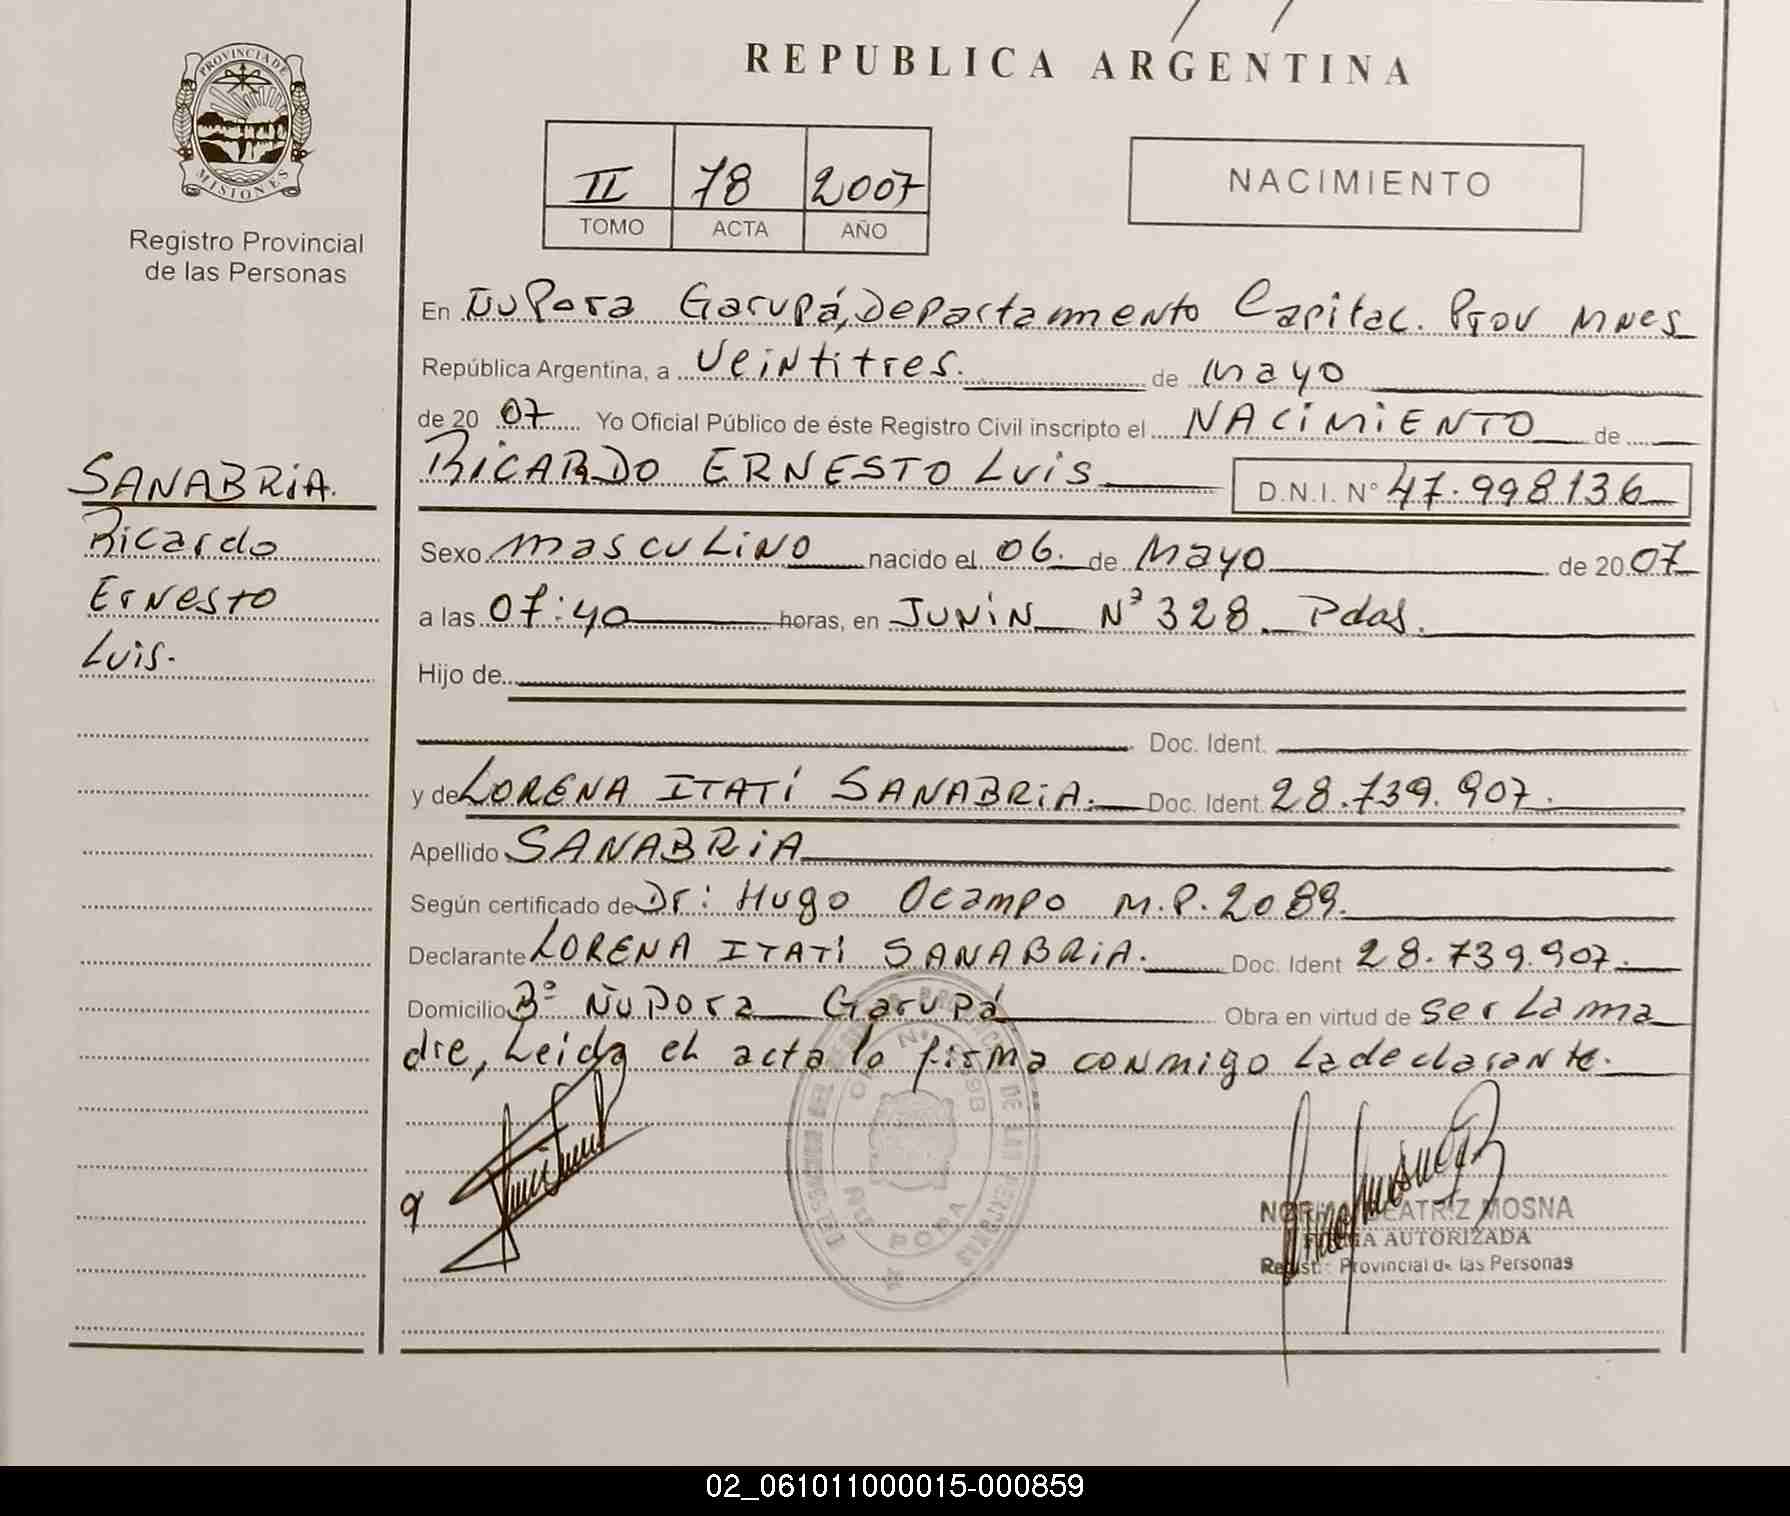 PROVINCIA DE
MISIONES
Registro Provincial
de las Personas
SANABRIA.
Ricardo
Ernesto
Luis.
REPUBLICA ARGENTINA
II 78 2007
TOMO ACTA AÑO
NACIMIENTO
En Ñu Pora Garupá, Departamento Capital. Prov Mnes
República Argentina, a Veintitres. de Mayo
de 2007 Yo Oficial Público de éste Registro Civil inscripto el NACIMIENTO de
RICARDO ERNESTO LUIS D.N.I. N° 47.998136
Sexo masculino nacido el 06. de Mayo de 2007
a las 07:40 horas, en JUNIN Nº 328. Pdas.
Hijo de
Doc. Ident.
y de LORENA ITATÍ SANABRIA. Doc. Ident. 28.739.907.
Apellido SANABRIA
Según certificado de Dr: Hugo Ocampo M.P. 2089.
Declarante LORENA ITATÍ SANABRIA. Doc. Ident 28.739.907.
Domicilio Bº Ñu Pora Garupá Obra en virtud de ser la ma
dre, Leida el acta la firma conmigo la declarante.
ÑU PORA
NORMA BEATRIZ MOSNA
FIRMA AUTORIZADA
Regist. Provincial de las Personas
02_061011000015-000859